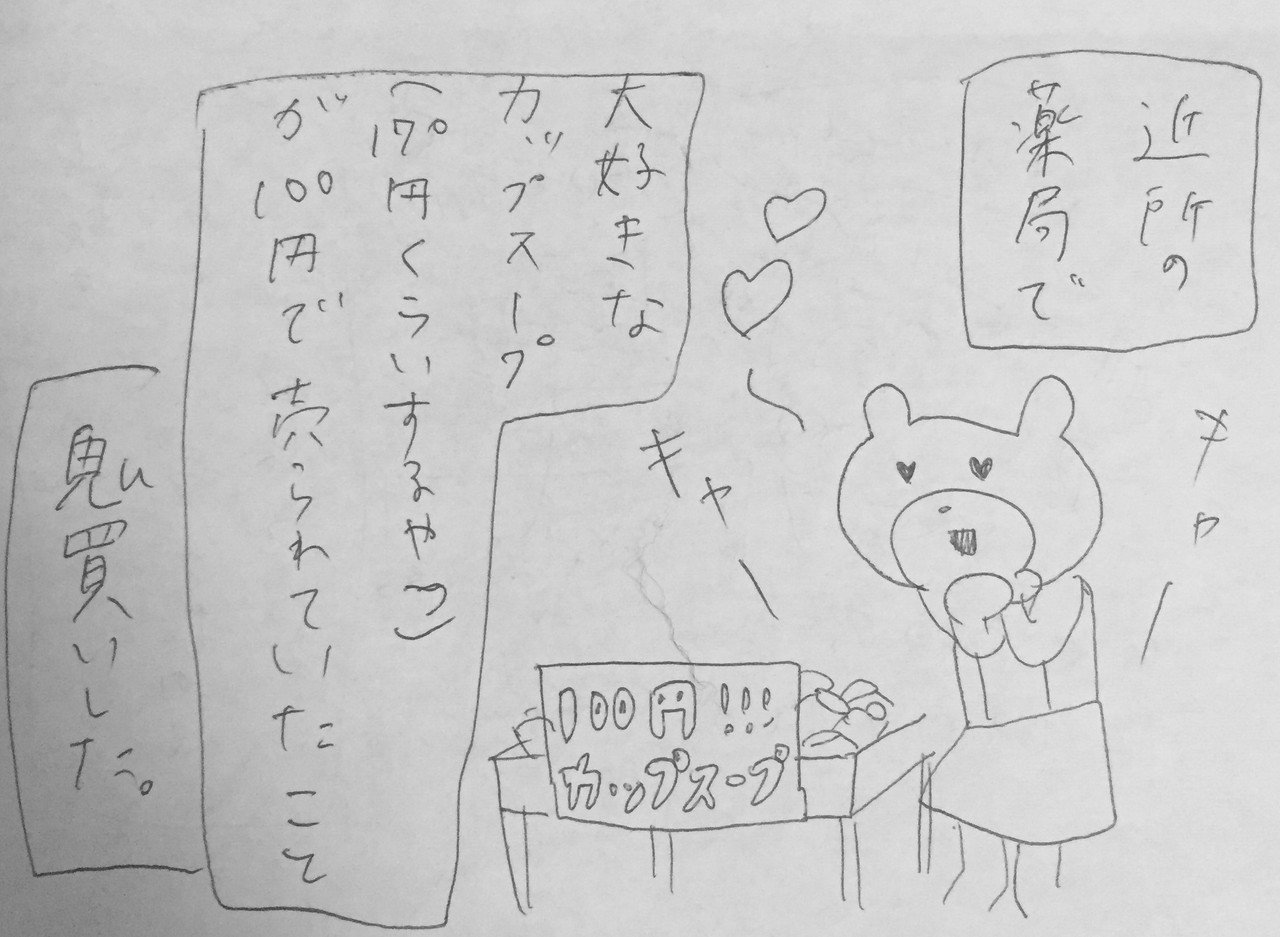 近所の
薬局で
キャー
大好きな
カップスープ
(170円くらいするやつ)
が100円で売られていたこと
キャー
100円!!!
カップスープ
鬼買いした。